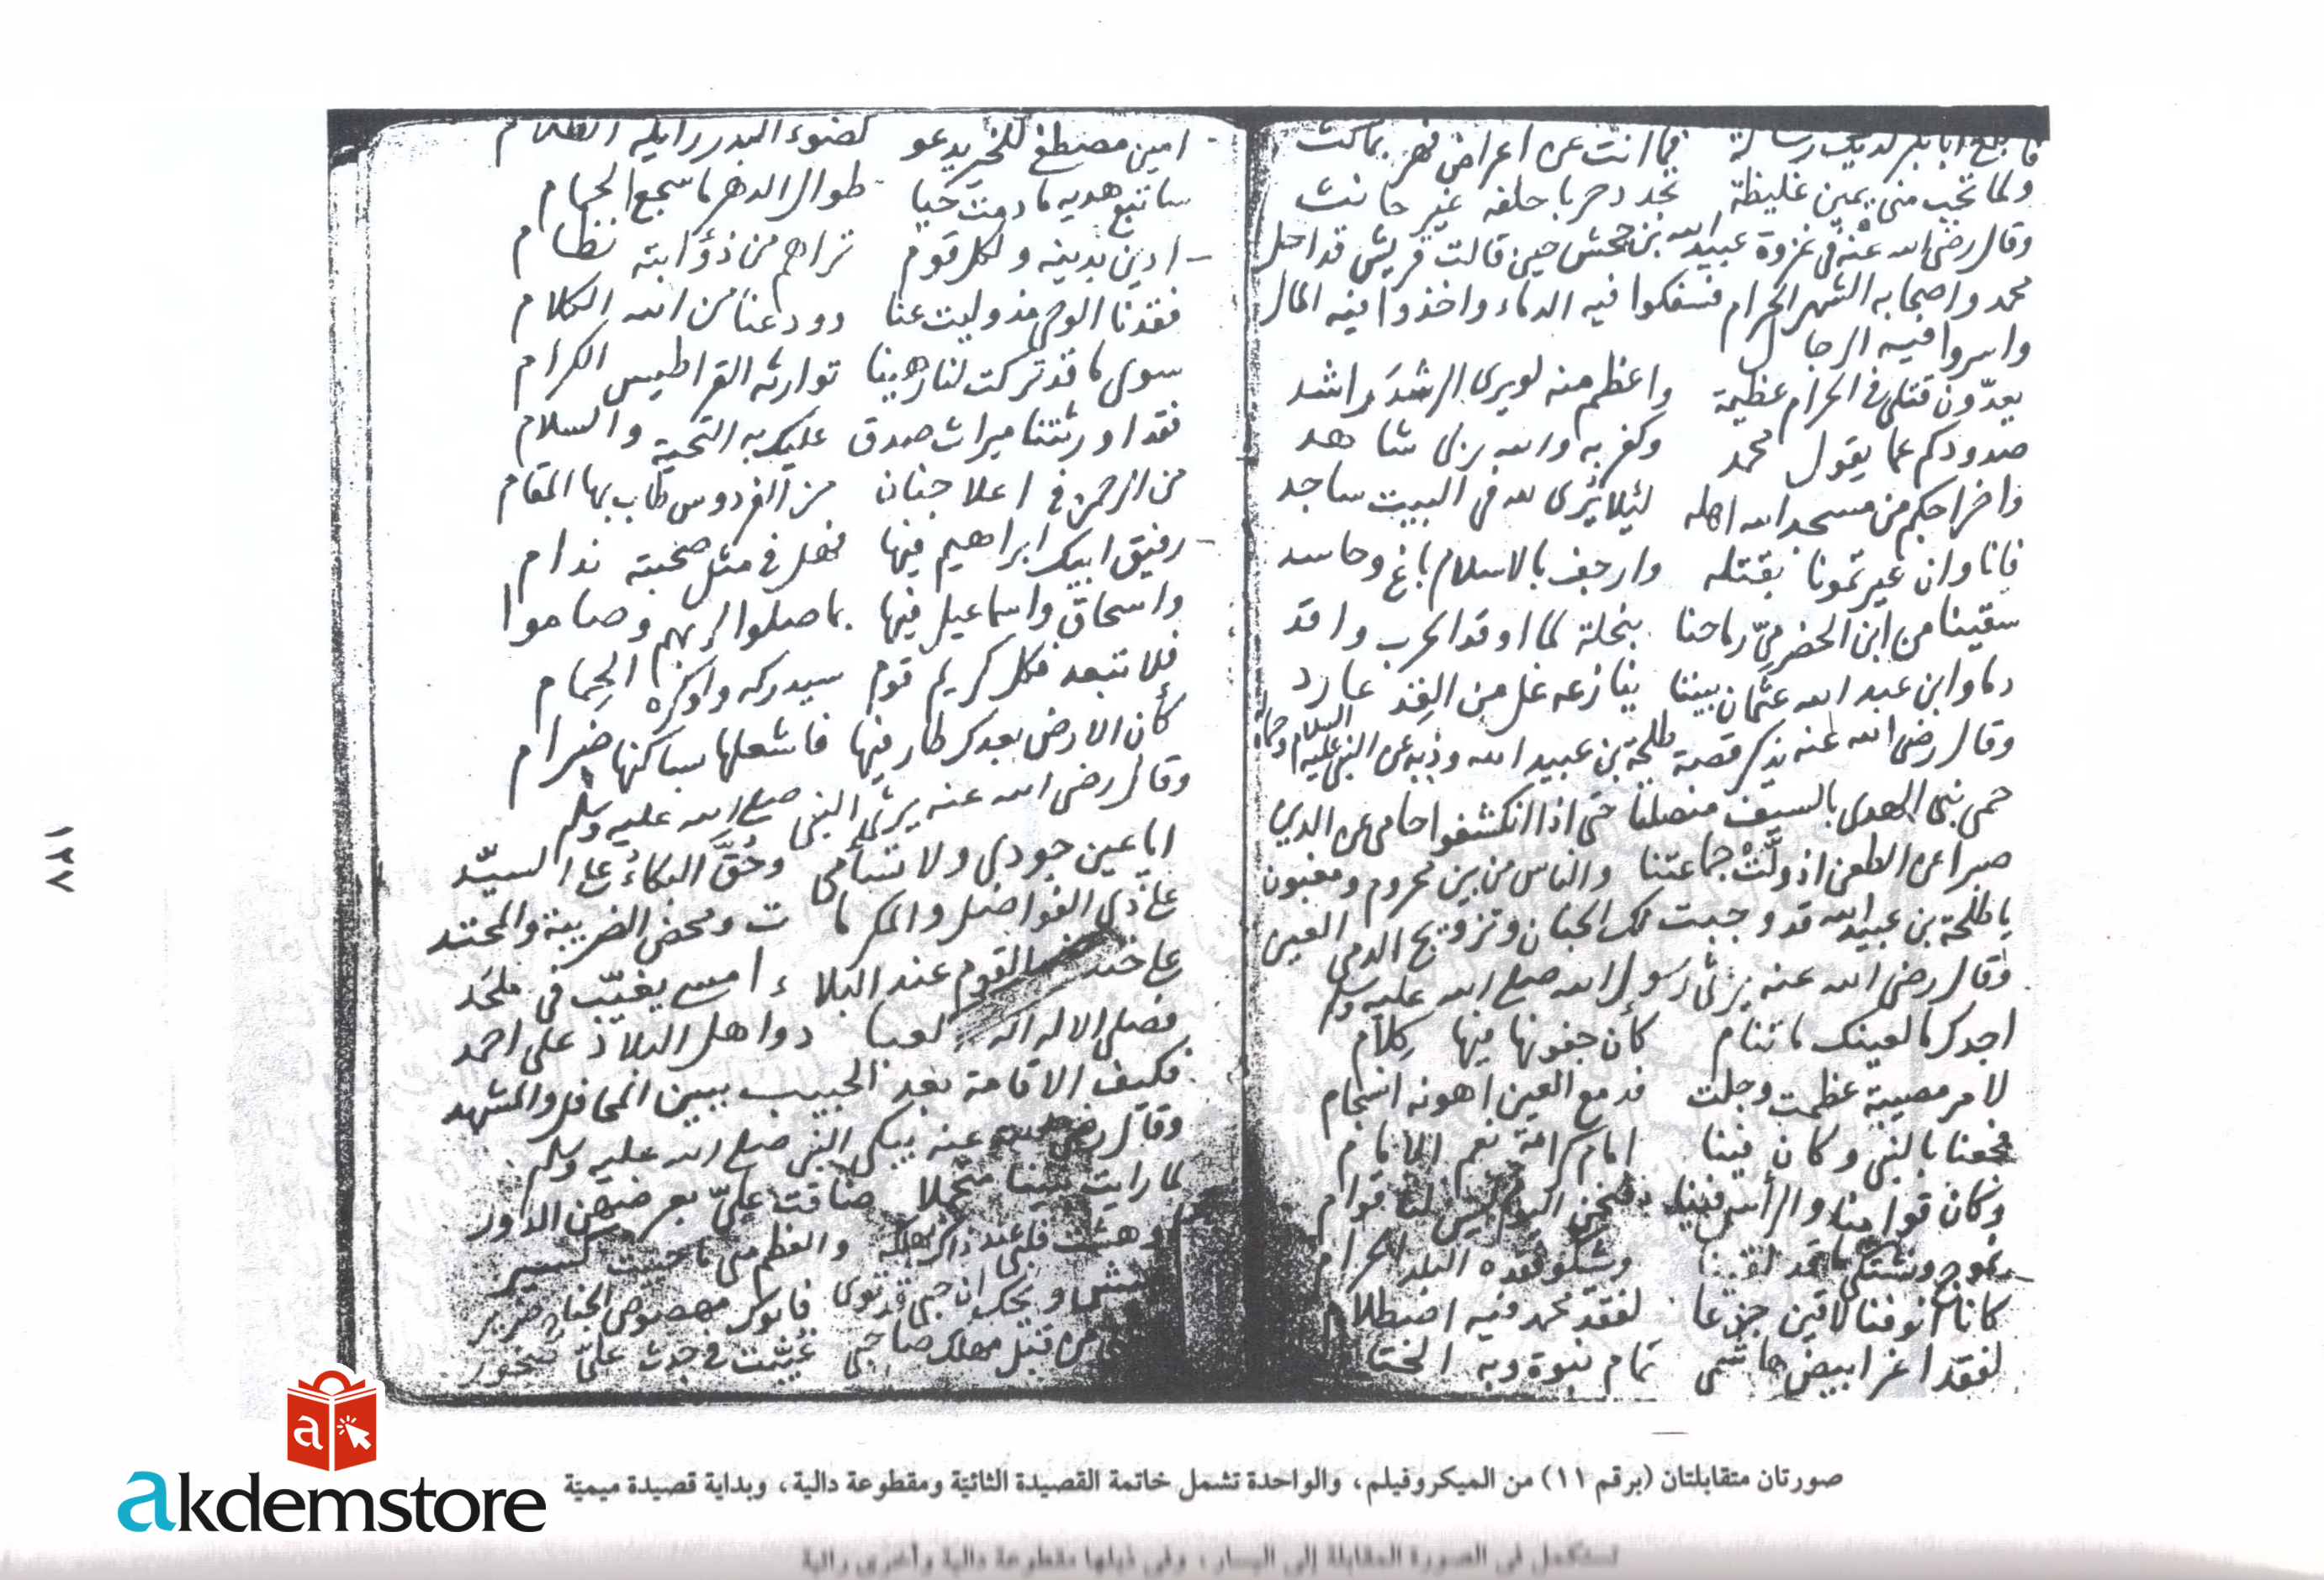 فما انت عن اعراض فهر بماكث
ولما تجب مني يمين غليظة تجدد حربا حلفه غير حانث
وقال رضى الله عنه في غزوة عبيد الله بن جحش حين قالت قريش قد احل
محمد واصحابه الشهر الحرام فسفكوا فيه الدماء واخذوا فيه المال
واسروا فيه الرجال
يعدّون قتلى في الحرام عظيمة واعظم منه لو يرى الرشد راشد
صدودكم عما يقول محمد وكفر به والله ربى شاهد
واخراجكم من مسجد الله اهله لئلا يُرى لله فى البيت ساجد
فانا وان غيرتمونا بقتله وارجف بالاسلام باغ وحاسد
سقينا من ابن الحضرميّ رماحنا بنخلة لما اوقد الحرب واقد
دما وابن عبد الله عثمان بيننا ينازعه غل من القد عارد
وقال رضى الله عنه يذكر قصة طلحة بن عبيد الله وذبه عن النبي عليه السلام
حمى نبى الهدى بالسيف منصلتا حتى اذا انكشفوا حامى عن الدين
صبرا عن الطعن اذ ولّت جماعتنا والناس من بين محروم ومغبون
يا طلحة بن عبيد الله قد وجبت لك الجنان وتزويج الدمى العين
وقال رضى الله عنه يرثى رسول الله صلى الله عليه وسلم
اجدك ما لعينك ما تنام كأن جفونها فيها كلام
لامر مصيبة عظمت وجلت فدمع العين اهونه انسجام
فجعنا بالنبى وكان فينا امام كرامة نعم الامام
وكان قوامنا والرأس فينا فنحن اليوم ليس لنا قوام
نموج ونشتكى ما قد لقينا ويشكو فقده البلد الحرام
كانا انوفنا لاقين جدعا لفقد محمد فيه اصطلام
لفقد اغر ابيض هاشمى تمام نبوة وبه الختام
امين مصطفى للخير يدعو كضوء البدر زايله الظلام
ساتبع هديه ما دمت حيا طوال الدهر ما سجع الحمام
ادين بدينه ولكل قوم تراهم من ذؤابته نظام
فقدنا الوحى مذ وليت عنا وودعنا من الله الكلام
سوى ما قد تركت لنا رهينا توارثه القراطيس الكرام
فقد اورثتنا ميراث صدق عليك به التحية والسلام
من الرحمن في اعلا جنان من الفردوس طاب بها المقام
رفيق ابيك ابراهيم فيها فهل في مثل صحبته ندام
واسحاق واسماعيل فيها بما صلوا لربهم وصاموا
فلا تبعد فكل كريم قوم سيدركه ولو كره الحِمام
كأن الارض بعدك طار فيها فاشعلها بساكنها ضرام
وقال رضى الله عنه يرثى النبى صلى الله عليه وسلم
اعين جودى ولا تسأمى وحُقَّ البكاءُ على السيّد
على ذى الفواضل والمكرمات ومحض الضريبة والمحتد
على القوم عند البلاء امسى يغيّب في ملحَد
فصلى الاله على احمد
فكيف الاقامة بعد الحبيب بين المحافل والمشهد
وقال رضى الله عنه يبكى النبى صلى الله عليه وسلم
لما رايت نبينا متجدلا ضاقت عليّ بعرضهن الدور
والعظم منى ما حييت كسير
ويحك ان حبى قد ثوى
من قبل مهلك صاحبى غيبت في جدث عليّ صخور
١٢٧
صورتان متقابلتان (برقم ١١) من الميكروفيلم، والواحدة تشمل خاتمة القصيدة الثائيّة ومقطوعة دالية، وبداية قصيدة ميميّة
تستكمل في الصورة المقابلة إلى اليسار، وفي ذيلها مقطوعة دالية وأخرى رائية
akdemstore